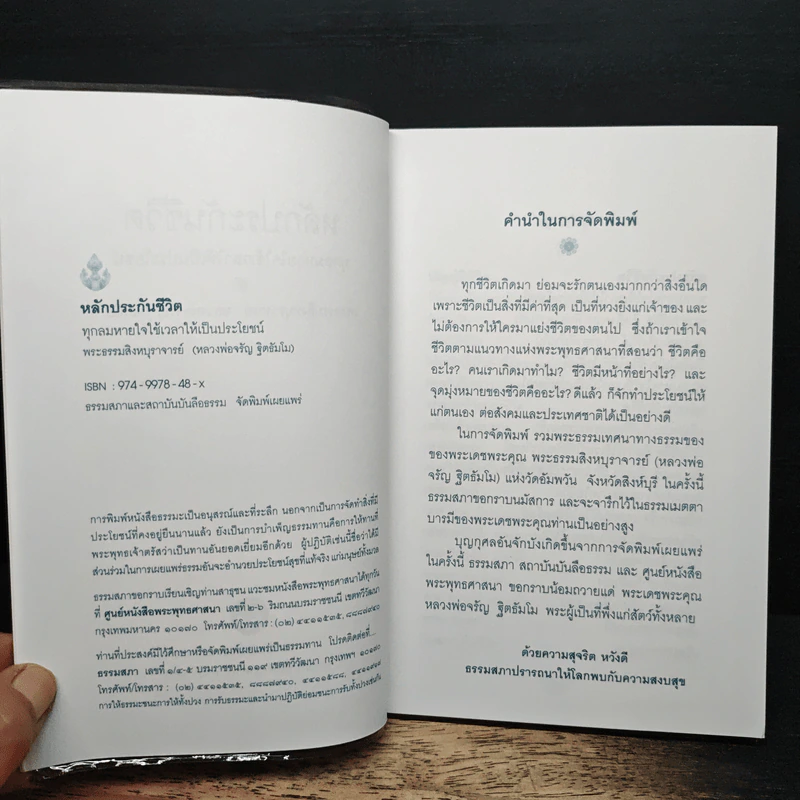 หลักประกันชีวิต
ทุกลมหายใจใช้เวลาให้เป็นประโยชน์
พระธรรมสิงหบุราจารย์ (หลวงพ่อจรัญ ฐิตธัมโม)
ISBN : 974-9978-48-x
ธรรมสภาและสถาบันบันลือธรรม จัดพิมพ์เผยแพร่
การพิมพ์หนังสือธรรมะเป็นอนุสรณ์และที่ระลึก นอกจากเป็นการจัดทำสิ่งที่มี
ประโยชน์ที่คงอยู่ยืนนานแล้ว ยังเป็นการบำเพ็ญธรรมทานคือการให้ทานที่
พระพุทธเจ้าตรัสว่าเป็นทานอันยอดเยี่ยมอีกด้วย ผู้ปฏิบัติเช่นนี้ชื่อว่าได้มี
ส่วนร่วมในการเผยแพร่ธรรมอันจะอำนวยประโยชน์สุขที่แท้จริง แก่มนุษย์ทั้งมวล
ธรรมสภาขอกราบเรียนเชิญท่านสาธุชน แวะชมหนังสือพระพุทธศาสนาได้ทุกวัน
ที่ ศูนย์หนังสือพระพุทธศาสนา เลขที่ ๒-๖ ริมถนนบรมราชชนนี เขตทวีวัฒนา
กรุงเทพมหานคร ๑๐๑๗๐ โทรศัพท์/โทรสาร : (๐๒) ๔๔๑๑๕๓๕, ๘๘๘๗๙๔๐
ท่านที่ประสงค์มีไว้ศึกษาหรือจัดพิมพ์เผยแพร่เป็นธรรมทาน โปรดติดต่อที่...
ธรรมสภา เลขที่ ๑/๔-๕ บรมราชชนนี ๑๑๙ เขตทวีวัฒนา กรุงเทพฯ ๑๐๑๗๐
โทรศัพท์/โทรสาร : (๐๒) ๔๔๑๑๕๓๕, ๘๘๘๗๙๔๐, ๔๔๑๑๕๘๘, ๔๔๑๑๙๑๗
การให้ธรรมะชนะการให้ทั้งปวง การรับธรรมะและนำมาปฏิบัติย่อมชนะการรับทั้งปวงเช่นกัน
คำนำในการจัดพิมพ์
ทุกชีวิตเกิดมา ย่อมจะรักตนเองมากกว่าสิ่งอื่นใด
เพราะชีวิตเป็นสิ่งที่มีค่าที่สุด เป็นที่หวงยิ่งแก่เจ้าของ และ
ไม่ต้องการให้ใครมาแย่งชีวิตของตนไป ซึ่งถ้าเราเข้าใจ
ชีวิตตามแนวทางแห่งพระพุทธศาสนาที่สอนว่า ชีวิตคือ
อะไร? คนเราเกิดมาทำไม? ชีวิตมีหน้าที่อย่างไร? และ
จุดมุ่งหมายของชีวิตคืออะไร? ดีแล้ว ก็จักทำประโยชน์ให้
แก่ตนเอง ต่อสังคมและประเทศชาติได้เป็นอย่างดี
ในการจัดพิมพ์ รวมพระธรรมเทศนาทางธรรมของ
ของพระเดชพระคุณ พระธรรมสิงหบุราจารย์ (หลวงพ่อ
จรัญ ฐิตธัมโม) แห่งวัดอัมพวัน จังหวัดสิงห์บุรี ในครั้งนี้
ธรรมสภาขอกราบนมัสการ และจะจารึกไว้ในธรรมเมตตา
บารมีของพระเดชพระคุณท่านเป็นอย่างสูง
บุญกุศลอันจักบังเกิดขึ้นจากการจัดพิมพ์เผยแพร่
ในครั้งนี้ ธรรมสภา สถาบันบันลือธรรม และ ศูนย์หนังสือ
พระพุทธศาสนา ขอกราบน้อมถวายแด่ พระเดชพระคุณ
หลวงพ่อจรัญ ฐิตธัมโม พระผู้เป็นที่พึ่งแก่สัตว์ทั้งหลาย
ด้วยความสุจริต หวังดี
ธรรมสภาปรารถนาให้โลกพบกับความสงบสุข